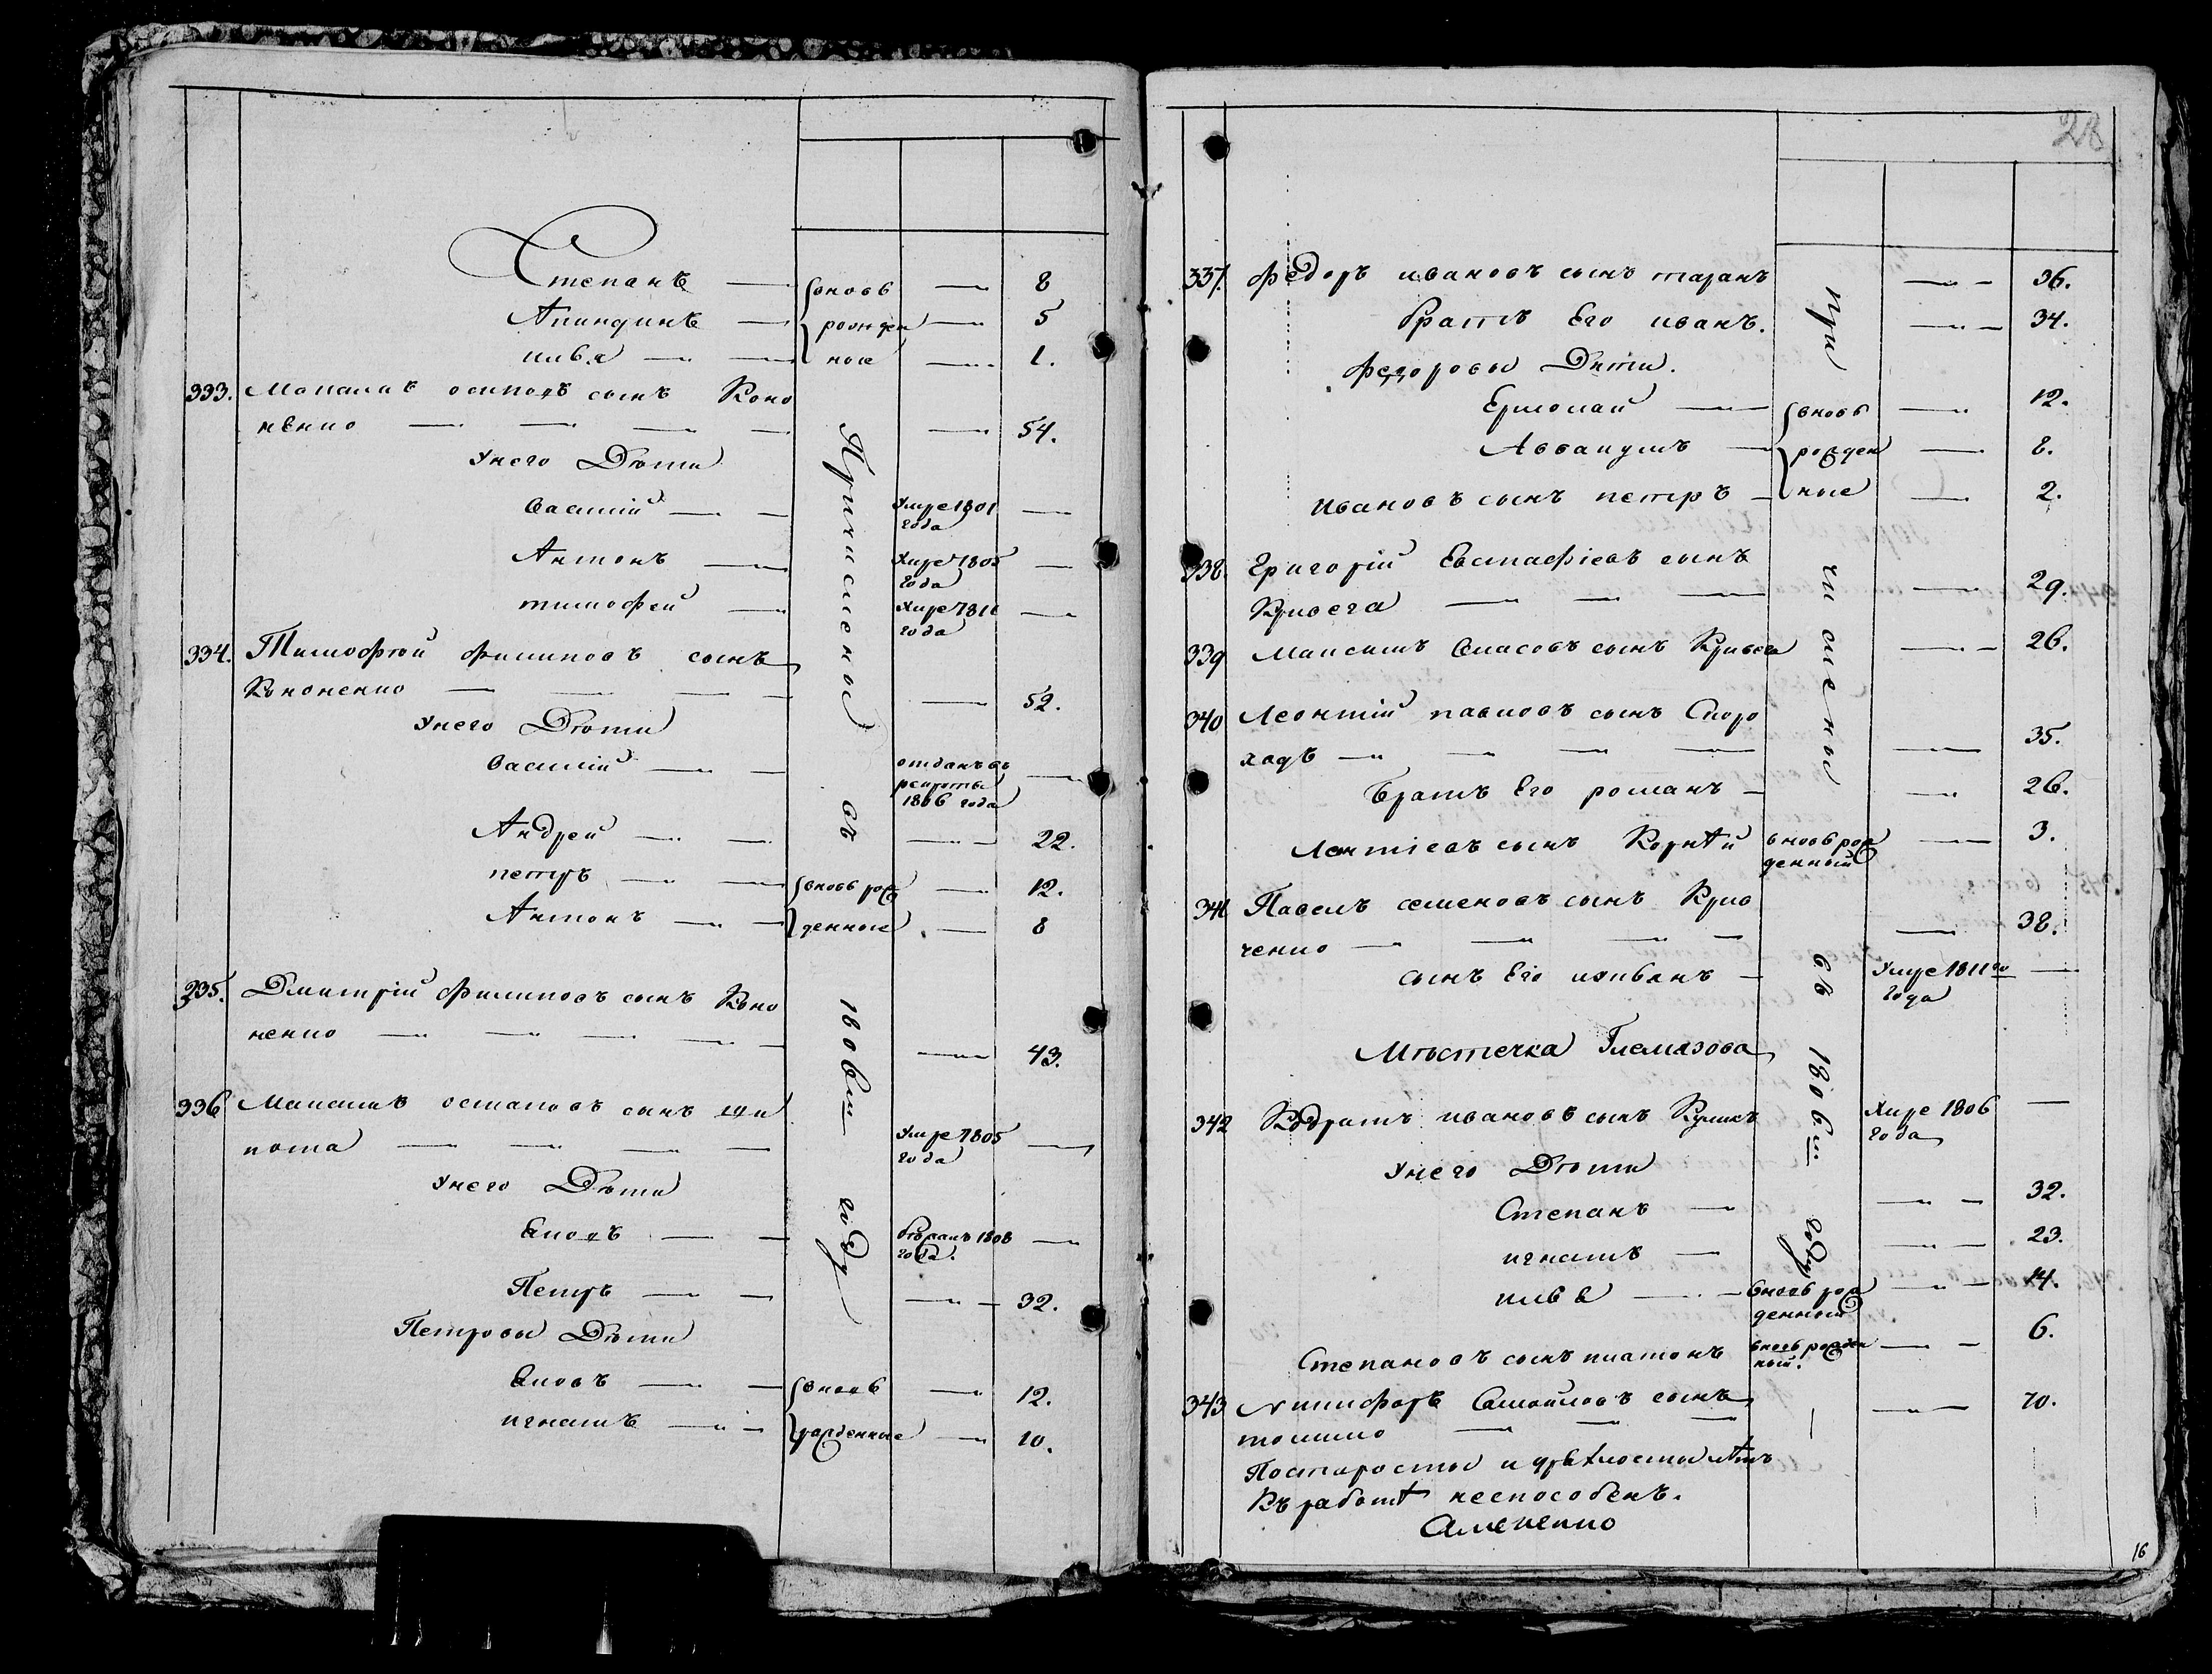 Степанъ вновь 8
Акиндинъ рожден 5
ные 1.
333. осиповъ сынъ Коно
ненко 54.
Унего Дѣти
Василій Умре 1801
года
Антонъ Умре 1805
года
тимофей Умре 1811
года
334. Тимофѣй филиповъ сынъ
Кононенко 52.
Унего Дѣти
Василій отданъ въ
рекруты
1806 года
Андрей 22.
петръ вновь рож 12.
Антонъ денные 8
335. Дмитрій Филиповъ сынъ Коно
ненко 43.
336 Максимъ остаповъ сынъ
Умре 1805
года
Унего Дѣти
Яковъ 1808
года.
Петръ 32.
Петровы Дѣти
Яковъ вновь 12.
игнатъ рожденные 10.
Причислены въ 1806м году
28
337. федоръ ивановъ сынъ таранъ 36.
братъ Его иванъ. 34.
федоровы Дѣти.
Ермолай вновь 12.
Аввакумъ рожден 8.
ивановъ сынъ петръ ные 2.
338. Григорій Евстафіевъ сынъ
29.
339 Максимъ Власовъ сынъ 26.
340 Леонтій павловъ сынъ Скоро
ходъ 35.
Братъ Его романъ 26.
Лентіевъ сынъ Корнѣй вновь рож 3.
денный
341 Павелъ семеновъ сынъ Крив
ченко 38.
сынъ Его Умре 1811го
года
Мѣстечка Глемязова
342 Кодратъ ивановъ сынъ Куликъ Умре 1806
года
Унего Дѣти
Степанъ 32.
игнатъ 23.
вновь рож 14.
денный
Степановъ сынъ платонъ вновь рожден 6.
ный.
343 Никифоръ Самойловъ сынъ 70.
Постарости и дряхлости лѣтъ
Къ работѣ неспособенъ.
Причислены въ 1806м. году
16